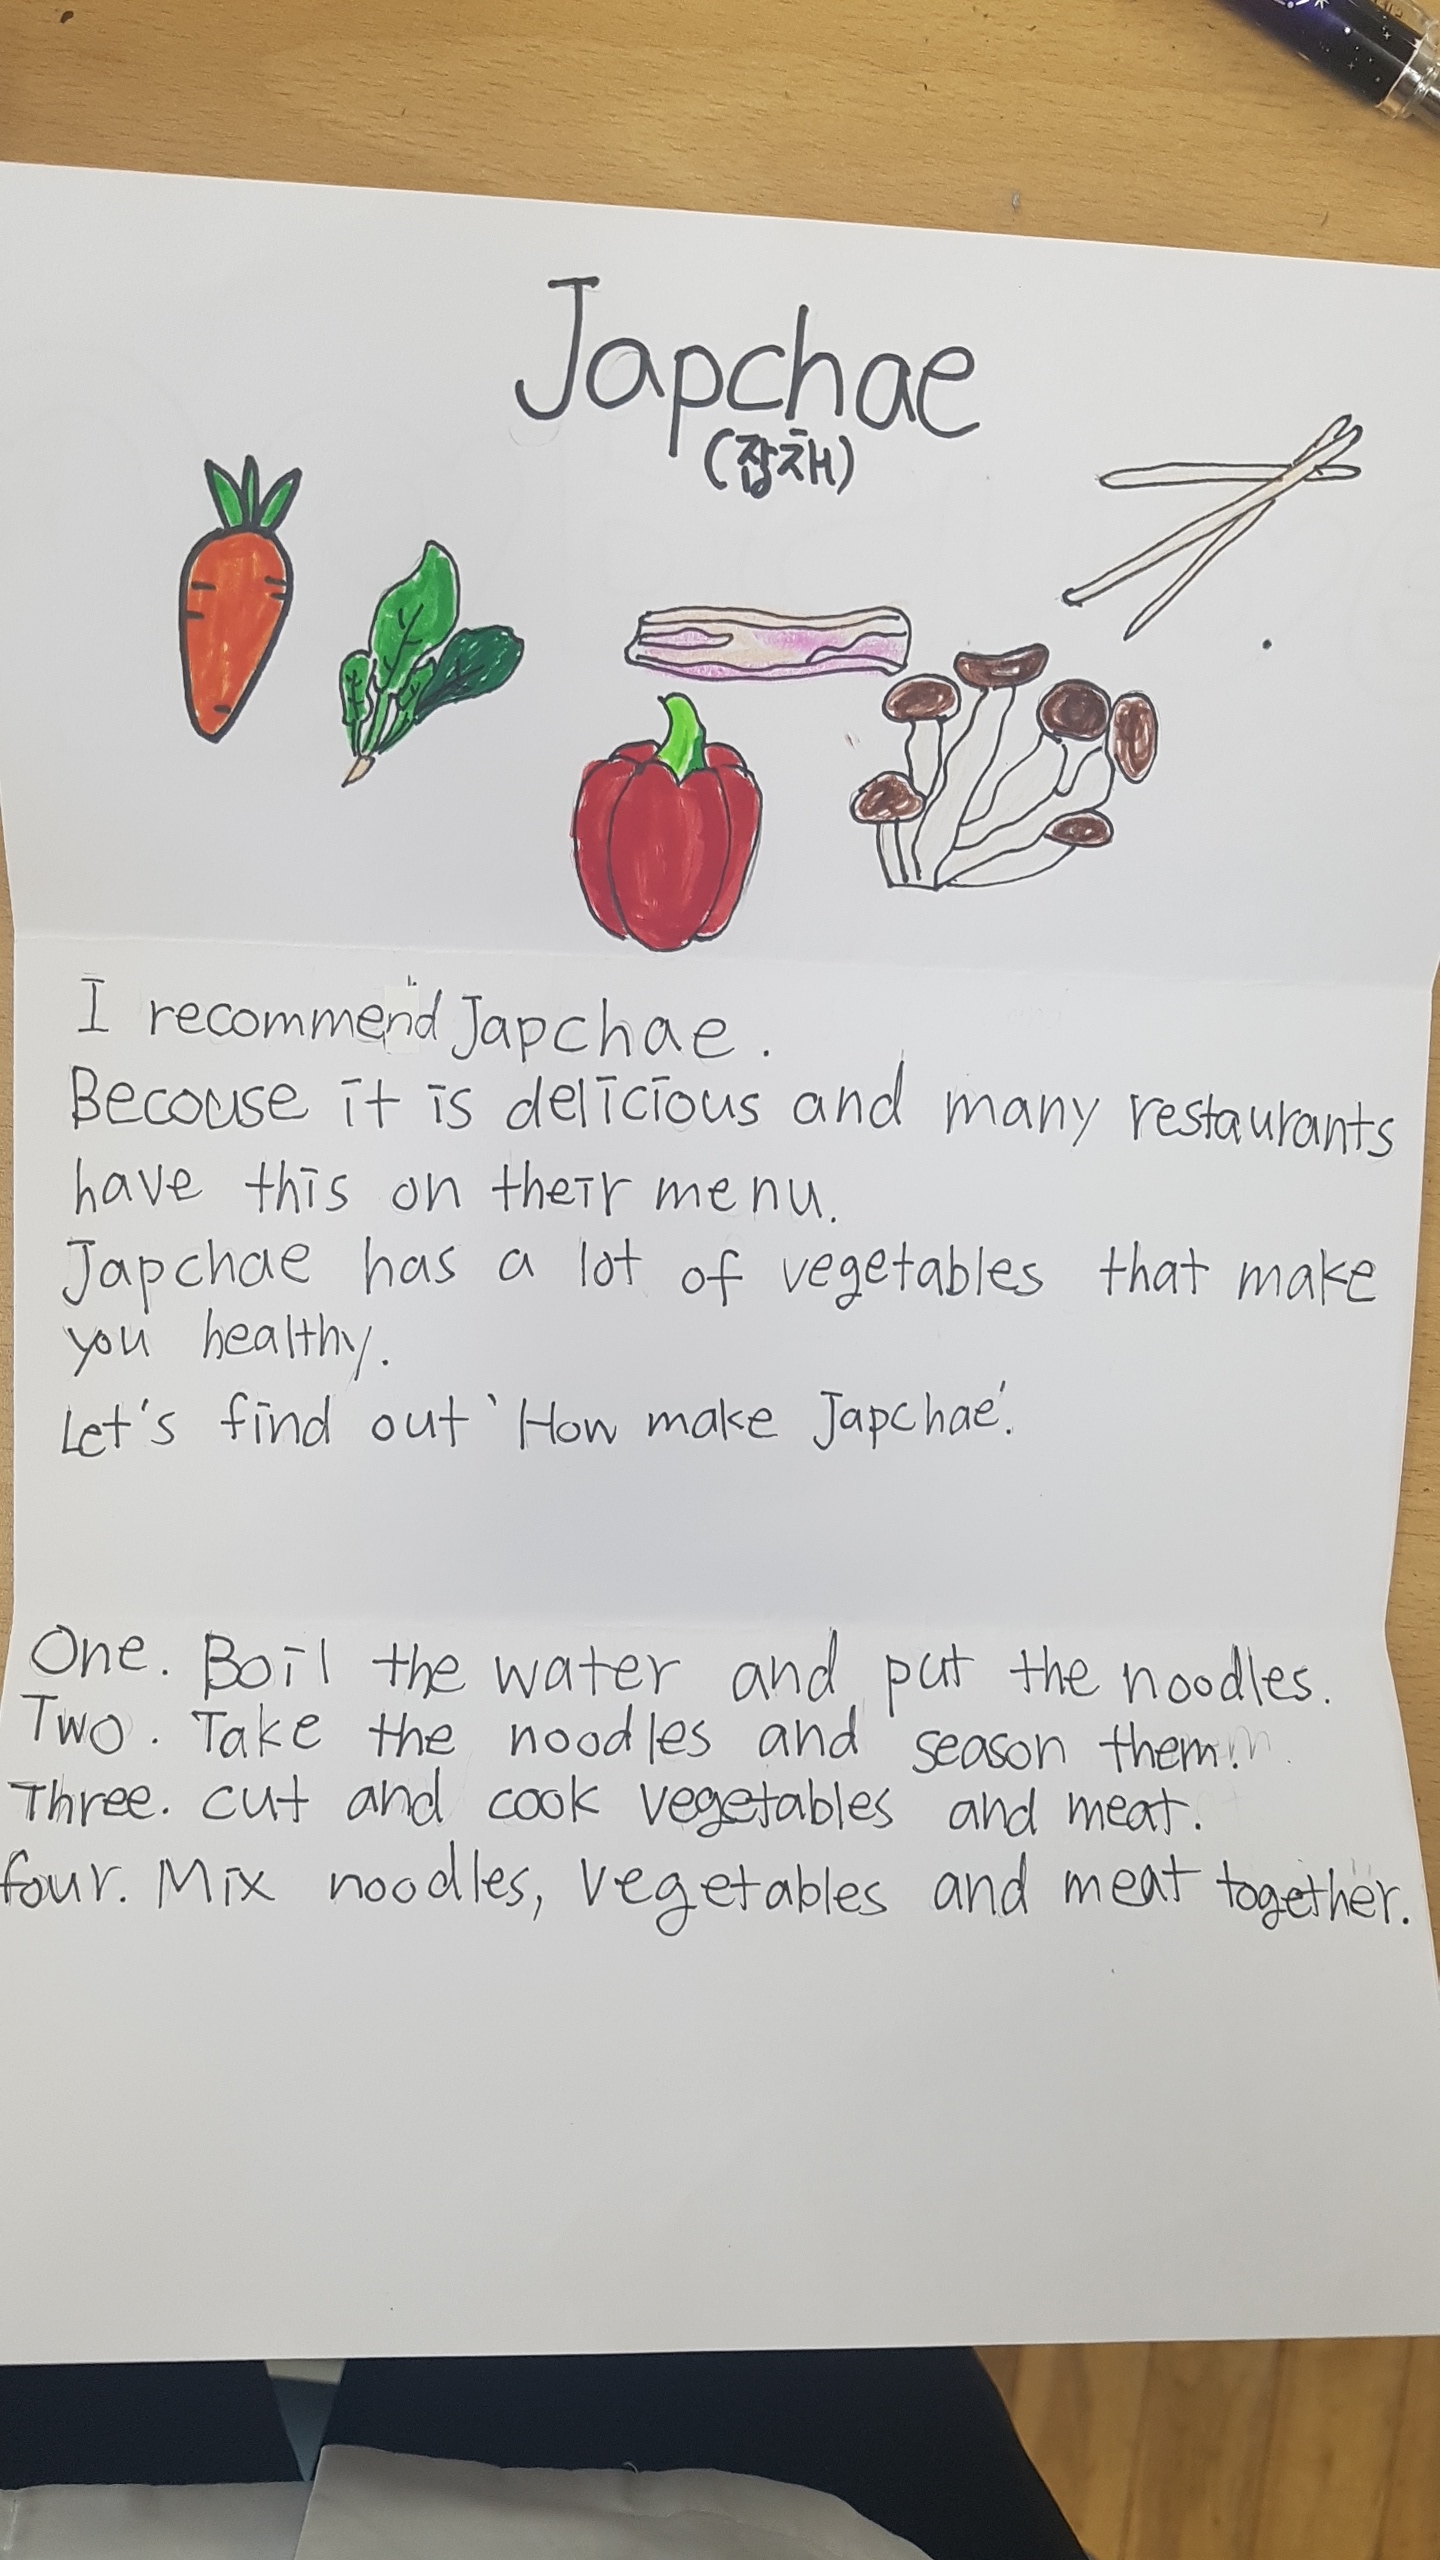 Japchae
(잡채)
I recommend Japchae.
Becouse it is delicious and many restaurants
have this on their menu.
Japchae has a lot of vegetables that make
you healthy.
Let's find out 'How make Japchae'.
One. Boil the water and put the noodles.
Two. Take the noodles and season them.
Three. cut and cook vegetables and meat.
four. Mix noodles, vegetables and meat together.